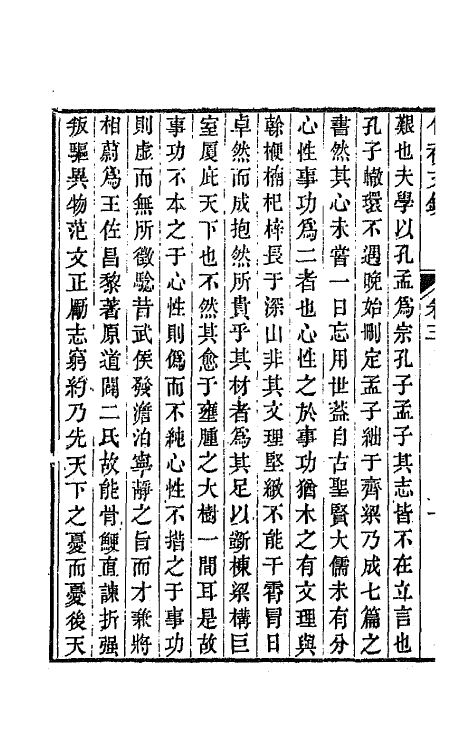 艱也夫學以孔孟爲宗孔子孟子其志皆不在立言也
孔子轍環不遇晚始刪定孟子絀于齊梁乃成七篇之
書然其心未嘗一日忘用世蓋自古聖賢大儒未有分
心性事功爲二者也心性之於事功猶木之有文理與
榦楩楠杞梓長于深山非其文理堅緻不能干霄冒日
卓然而成抱然所貴乎其材者爲其足以斵棟梁構巨
室厦庇天下也不然其愈于壅腫之大樹一間耳是故
事功不本之于心性則僞而不純心性不措之于事功
則虛而無所徵騐昔武侯發澹泊寧靜之旨而才兼將
相蔚爲王佐昌黎著原道闢二氏故能骨鯁直諫折强
叛驅異物范文正勵志窮約乃先天下之憂而憂後天